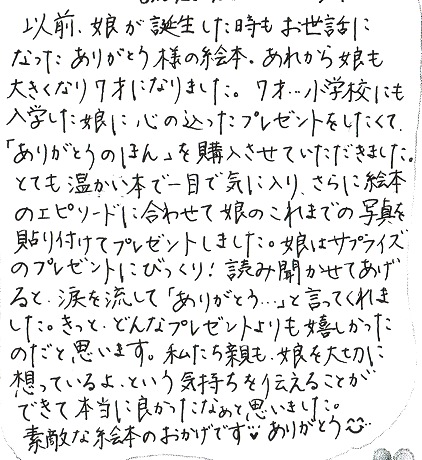 以前、娘が誕生した時もお世話に
なったありがとう様の絵本。あれから娘も
大きくなり7才になりました。7才…小学校にも
入学した娘に心の込ったプレゼントをしたくて、
「ありがとうのほん」を購入させていただきました。
とても温かい本で一目で気に入り、さらに絵本
のエピソードに合わせて娘のこれまでの写真を
貼り付けてプレゼントしました。娘はサプライズ
のプレゼントにびっくり!読み聞かせてあげ
ると、涙を流して「ありがとう…」と言ってくれま
した。きっと、どんなプレゼントよりも嬉しかった
のだと思います。私たち親も、娘を大切に
想っているよ、という気持ちを伝えることが
できて本当に良かったなぁと思いました。
素敵な絵本のおかげです♥ありがとう